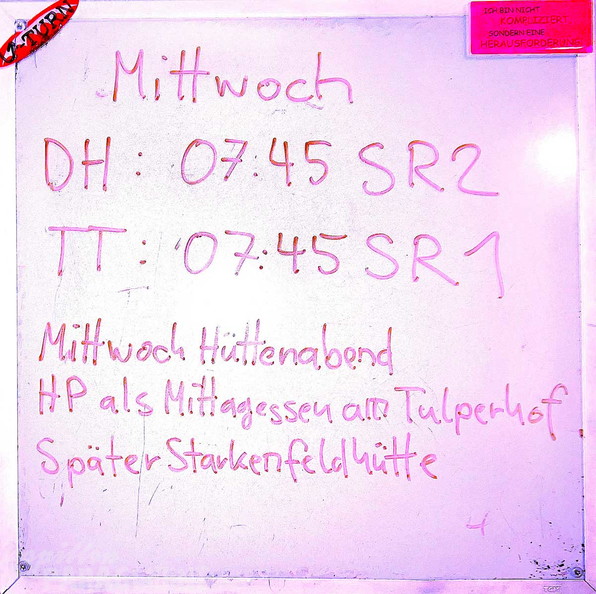 U-TURN
ICH BIN NICHT
KOMPLIZIERT
SONDERN EINE
HERAUSFORDERUNG
Mittwoch
DH: 07:45 SR2
TT: 07:45 SR1
Mittwoch Hüttenabend
HP als Mittagessen am Tulperhof
Später Starkenfeldhütte